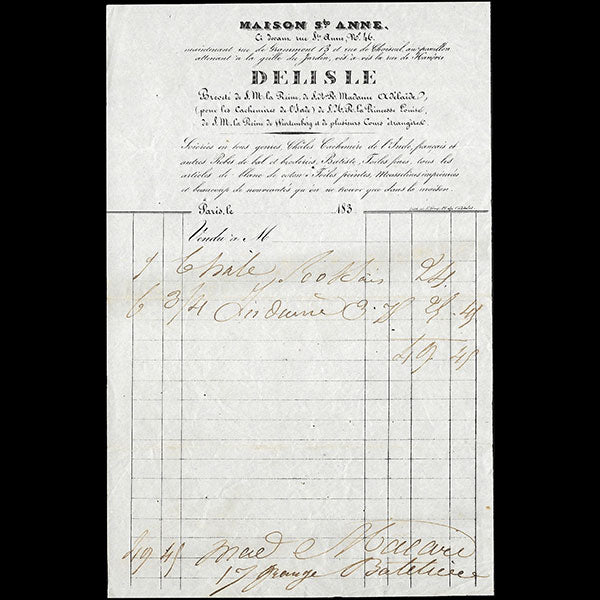 MAISON Ste ANNE.
Ci devant rue Ste Anne, No. 46.
maintenant rue de Grammont 13 et rue de Choiseul, au pavillon
attenant à la grille du Jardin, vis à vis la rue de Hanovre
DELISLE
Breveté de S.M. la Reine, de S.A.R. Madame Adélaïde,
(pour les Cachemires de l'Inde) de S.A.R. la Princesse Louise,
de S.M. la Reine de Wurtemberg et de plusieurs Cours étrangères.
Soieries en tous genres, Châles Cachemire de l'Inde, français et
autres Robes de bal et broderies, Batiste, Toiles fines, tous les
articles de blanc de coton, Toiles peintes, Mousselines imprimées
et beaucoup de nouveautés qu'on ne trouve que dans la maison.
Paris, le 183
Vendu à M
1 Chale 24
6 3/4 3. 25 45
49 45
49 45 Mad e
17 grange Bateliere